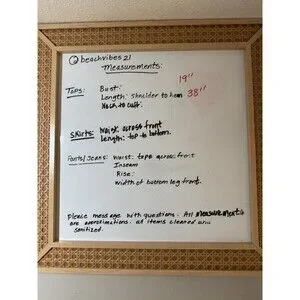 @beachvibes21
Measurements:
19"
Tops: Bust:
Length: Shoulder to hem 38"
Neck to cuff:
Skirts: Waist: across front
Length: top to bottom.
Pants/Jeans: Waist: taps across front
Inseam
Rise:
Width of bottom leg front.
Please message with questions. All measurements
are approximations. All items cleaned and
sanitized.